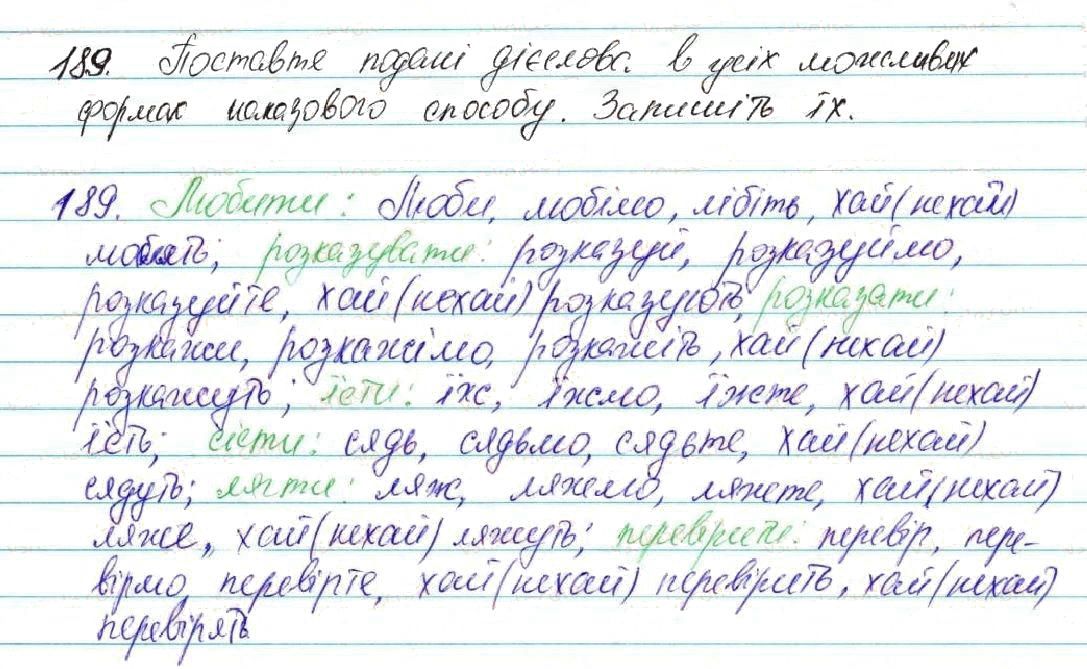 189. Поставте подані дієслова в усіх можливих
формах наказового способу. Запишіть їх.
189. Любити: Люби, любімо, любіть, хай(нехай)
люблять; розказувати: розказуй, розказуймо,
розказуйте, хай(нехай) розказують; розказати:
розкажи, розкажімо, розкажіть, хай(нехай)
розкажуть; їсти: їж, їжмо, їжте, хай(нехай)
їсть; сісти: сядь, сядьмо, сядьте, хай(нехай)
сядуть; лягти: ляж, ляжмо, ляжте, хай(нехай)
ляже, хай(нехай) ляжуть; перевірити: перевір, пере-
вірмо, перевірте, хай(нехай) перевірить, хай(нехай)
перевірять